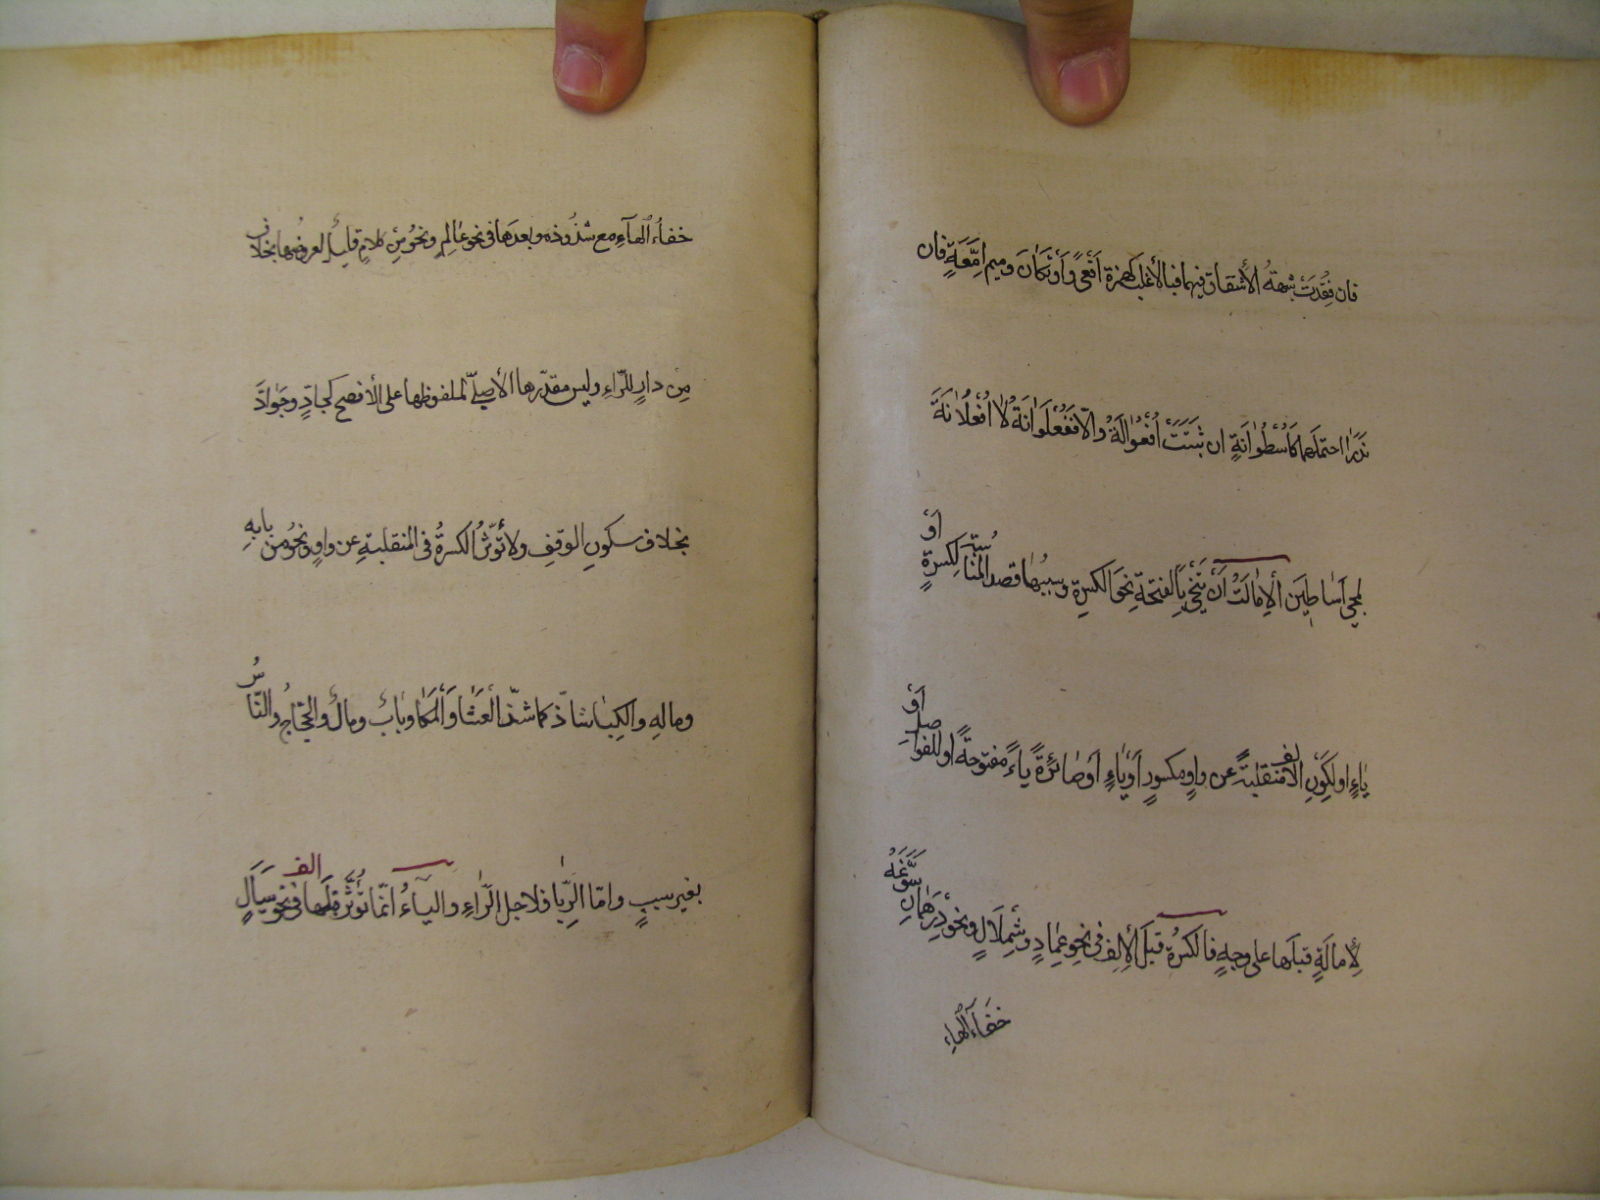 فان فُقِدَتْ شبهةُ الأشتقاق فيهما فبالأغلب كهمزة اَفْعًى وَاَوْتَكَانَ وميم اِمَّعَةٍ فان
نَدَرَا احتملهما كَاُسْطُوَانَةٍ ان ثبَتَتْ اُفْعُوَالَةٌ والّا فَفُعْلُوَانَةٌ لَا اُفْعُلَانَةٌ
لمجئ اَسَاطِينَ الاِمَالَةُ اَنْ يُنْحَى بِالفتحةِ نحوَ الكسرةِ وسببُها قصد المُنَاسَبَةِ لكسرةٍ اَوْ
ياءٍ اولكونِ الالف منقلبةً عن واوٍ مكسورٍ اَوْيَاءٍ اَوصَائرةً ياءً مفتوحةً اوللفواصلِ اَوْ
لِأمالَةٍ قبلَها على وجهٍ فالكسرةُ قبلَ الاَلِفِ فى نحوِ عِمَادٍ وشِمْلَالٍ ونحوُ دِرْهَمَانِ سَوَّغَهُ
خفَاءُ الْهَاءِ
خفاءُ الهآءِ مع شذوذه وبعدها فى نحو عَالِمٍ ونحوُ مِن كلامٍ قليلٌ لعروضها بخلاف
مِن دارٍ للرَّاءِ وليس مقدّرها الأصلىّ كملفوظها على الأفصح كجادٍّ وجَوَادَّ
بخلاف سكونِ الوقفِ ولا تُؤثّرُ الكسرةُ فى المنقلبةِ عن واوٍ ونحوُ من بابِهِ
ومالِهِ والكِبَا شاذّ كما شذّ العَشَا وَالْمَكَا وبابٌ ومالٌ والحجّاجُ والنّاسُ
بغير سببٍ وامّا الرِّبَا فلاجل الرَّاءِ والياءُ انّما تُؤَثِّرُ قبلَها الف فى نحو سَيَالٍ